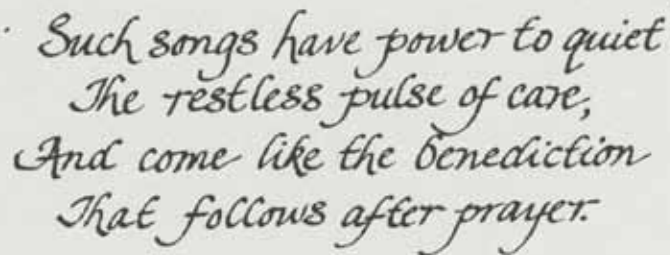 Such songs have power to quiet
The restless pulse of care,
And come like the benediction
That follows after prayer.